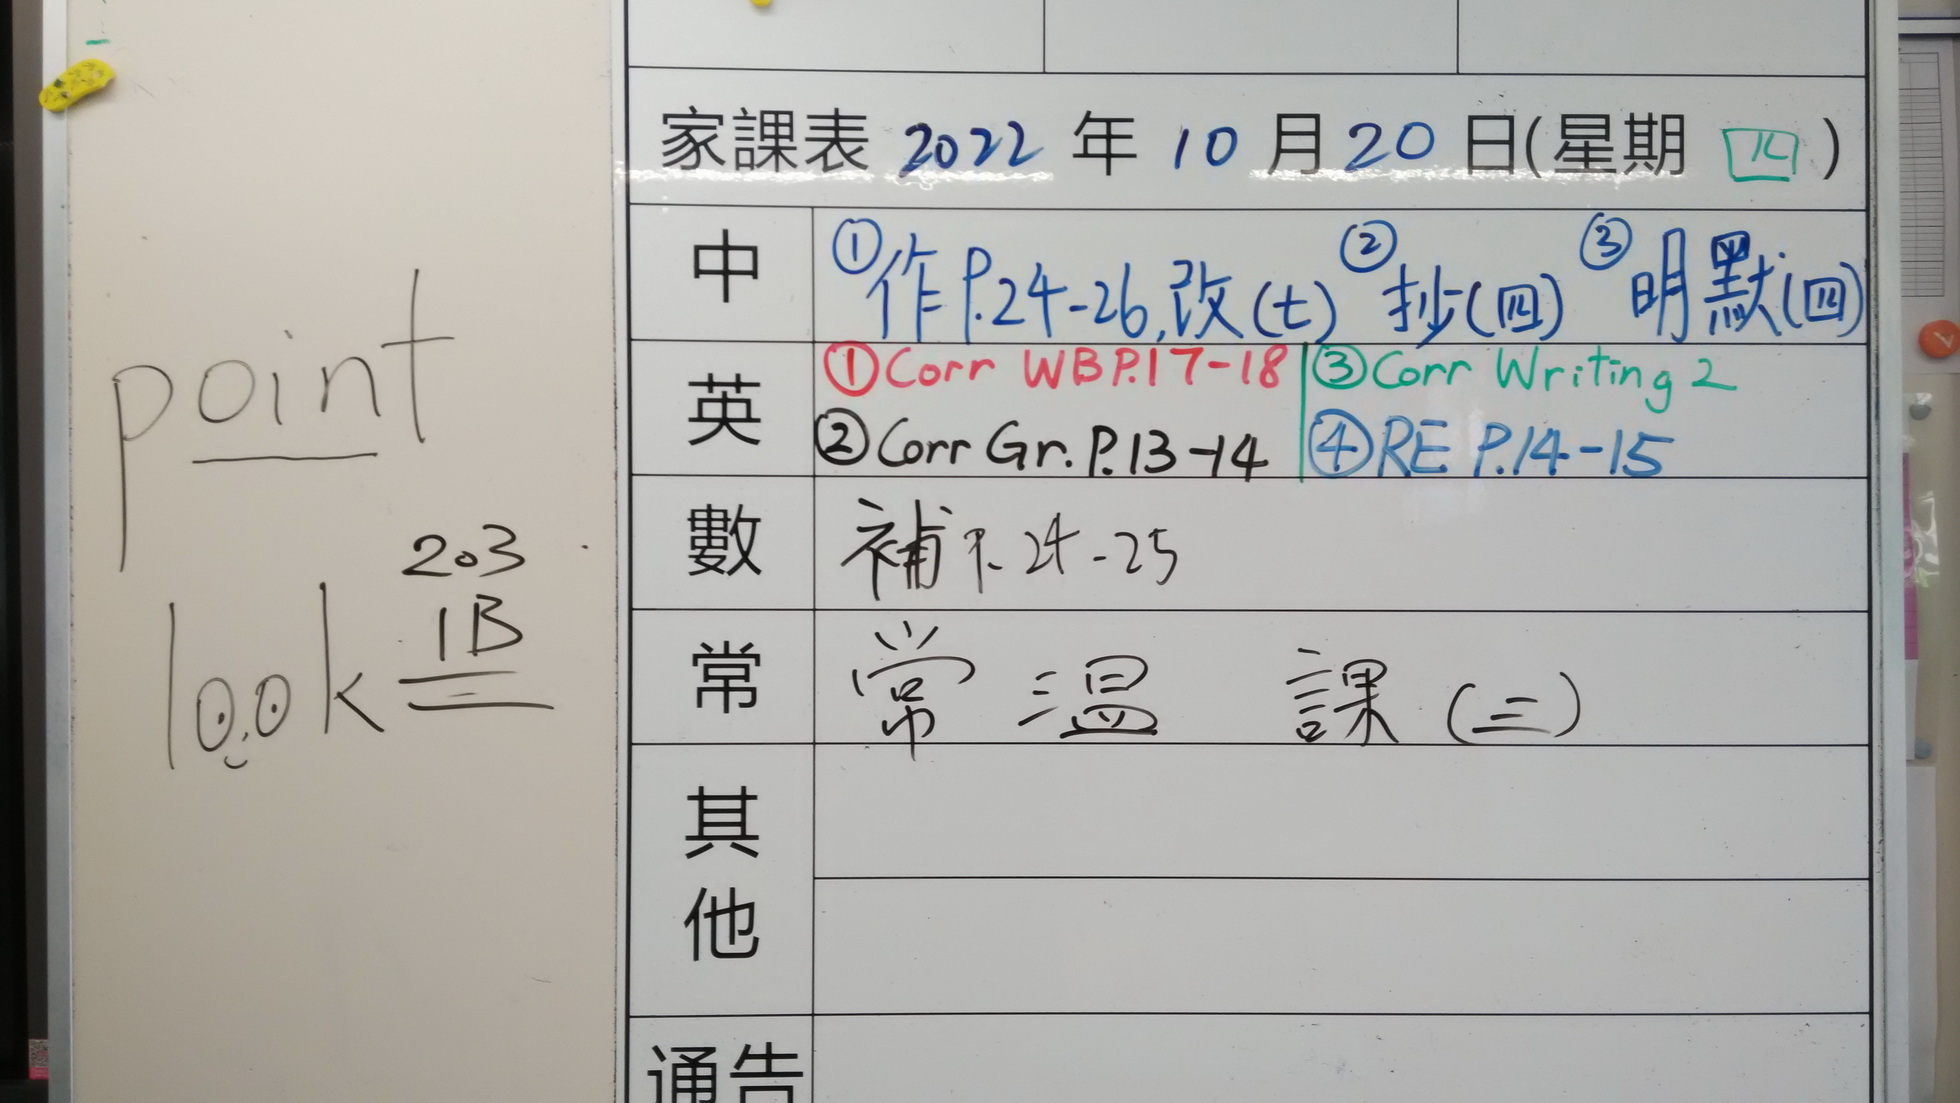 point
203
1B
look
家課表 2022 年 10 月 20 日(星期 四)
中 ①作P.24-26,改(七) ②抄(四) ③明默(四)
英 ①Corr WB P.17-18 ③Corr Writing 2
②Corr Gr. P.13-14 ④RE P.14-15
數 補P.24-25
常 常 温 課 (三)
其他
通告